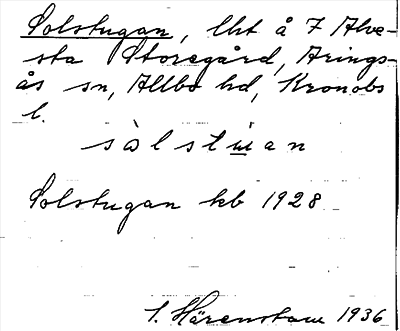 Solstugan, lht å 7 Alve-
sta Storegård, Arings-
ås sn, Allbo hd, Kronobs
l.
sòlstu̲an
Solstugan kb 1928
S. Härenstam 1936